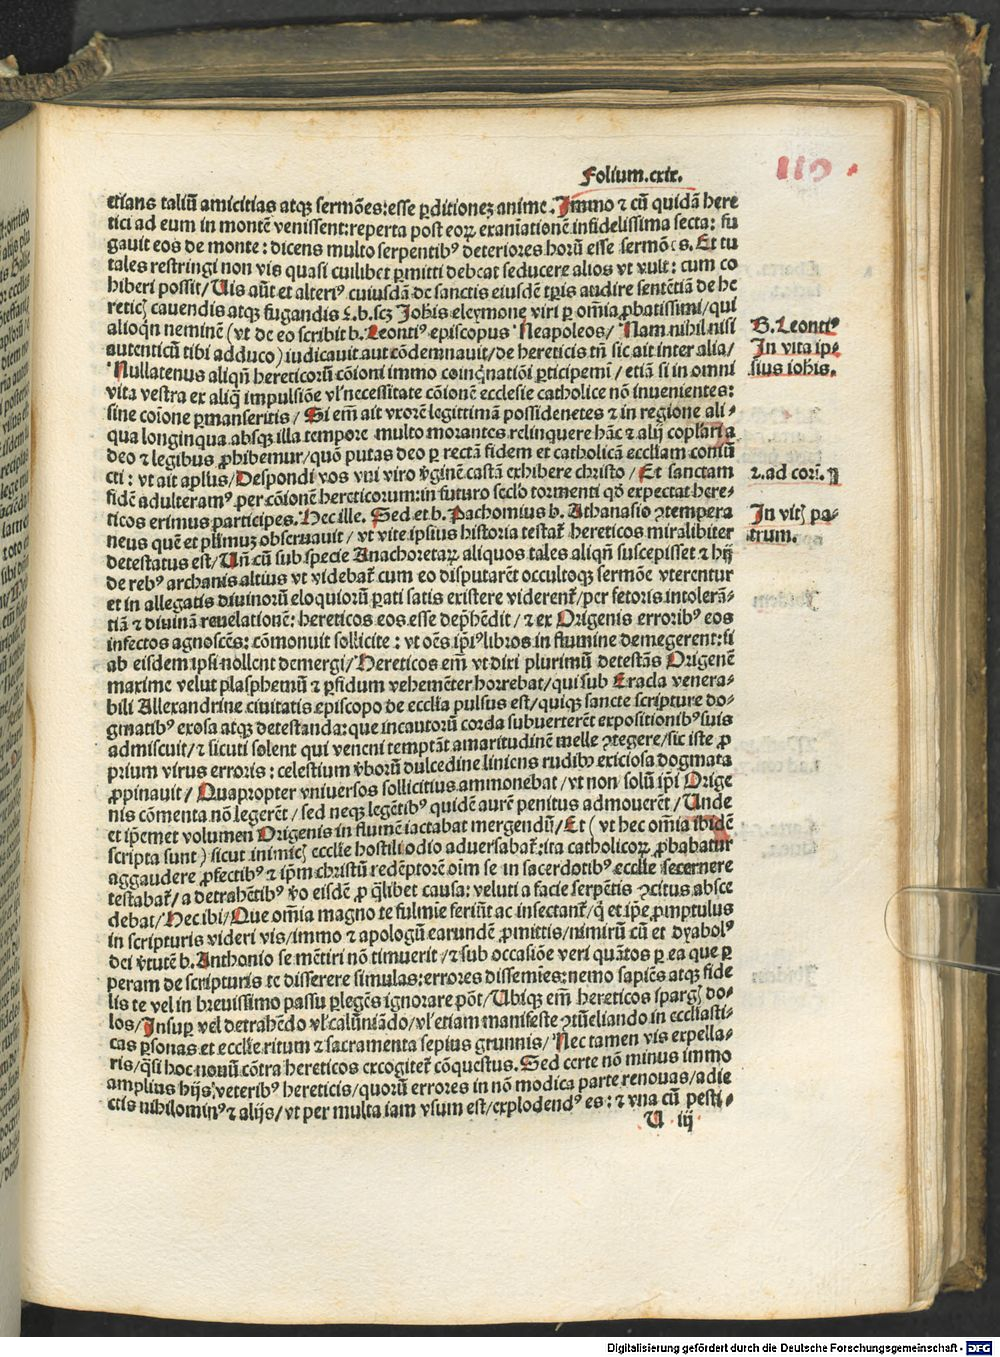 Folium.cxix.
119.
etians taliū amicitias atqꝫ sermōes:esse ꝑditioneꝫ anime. Immo ⁊ cū quidā here
tici ad eum in montē venissent:reperta post eoꝝ examīationē infidelissima secta: fu
gauit eos de monte: dicens multo serpentibꝰ deteriores horū esse sermōes. Et tu
tales restringi non vis quasi cuilibet ꝑmitti debeat seducere alios vt vult: cum co
hiberi possit/ Uis aūt et alteriꝰ cuiusdā de sanctis eiusdē tꝑis audire sentētiā de he
reticꝭ cauendis atqꝫ fugandis ſ.b.scꝫ Johīs eleymone viri ꝑ omīa ꝓbatissimi/qui
alioqn̄ neminē (vt de eo scribit b. Leontiꝰ episcopus Neapoleos/ Nam nihil nisi
autenticū tibi adduco) iudicauit aut cōdemnauit/de hereticis tn̄ sic ait inter alia/
Nullatenus aliqn̄ hereticorū cōioni immo coinqͥnatiōi ꝑticipemī/ etiā si in omni
vita vestra ex aliqͣ impulsiōe vl' necessitate cōionē ecclesie catholice nō inuenientes:
sine coīone ꝑmanseritis/ Si em̄ ait vxorē legittimā possidenetes ⁊ in regione ali-
qua longinqua absqꝫ illa tempore multo morantes relinquere hāc ⁊ alij coplari a
deo ⁊ legibus ꝓhibemur/quō putas deo ꝑ rectā fidem et catholicā eccliam coniū
cti: vt ait aplus/Despondi vos vni viro v̄ginē castā exhibere christo/ Et sanctam
fidē adulteramꝰ per cōionē hereticorum:in futuro seclo tormenti qđ expectat here-
ticos erimus participes. Hec ille. Sed et b. Pachomius b. Athanasio ꝯtempera
neus quē et plimuꝫ obseruauit/ vt vite ipsius historia testat̄ hereticos mirabiliter
detestatus est/ Un̄ cū sub specie Anachoretaꝝ aliquos tales aliqn̄ suscepisset ⁊ hij
de rebꝰ archanis altius vt videbat̄ cum eo disputarēt occultoqꝫ sermōe vterentur
et in allegatis diuinorū eloquiorū ꝑati satis existere viderent̄/per fetoris intolerā-
tiā ⁊ diuinā reuelationē: hereticos eos esse dep̄hēdit/ ⁊ ex Origenis erroribꝰ eos
infectos agnoscēs: cōmonuit sollicite: vt oēs ip̄iꝰ libros in flumine demegerent:si
ab eisdem ipsi nollent demergi/ Hereticos em̄ vt dixi plurimū detestās Origenē
maxime velut plasphemū ⁊ ꝑfidum vehemēter horrebat/qui sub Erada venera-
bili Allexandrine ciuitatis episcopo de ecclia pulsus est/quiqꝫ sancte scripture do-
gmatibꝰ exosa atqꝫ detestanda:que incautorū corda subuerterēt expositionibꝰ suis
admiscuit/⁊ sicuti solent qui veneni temptāt amaritudinē melle ꝯtegere/sic iste ꝓ
prium virus erroris: celestium v̄borū dulcedine liniens rudibꝰ exiciosa dogmata
ꝓpinauit/ Quapropter vniuersos sollicitius ammonebat/vt non solū ip̄i Orige
nis cōmenta nō legerēt/ sed neqꝫ legētibꝰ quidē aurē penitus admouerēt/ Unde
et ip̄emet volumen Origenis in flumē iactabat mergendū/ Et (vt hec omīa ibidē
scripta sunt) sicut inimicꝭ ecclie hostili odio aduersabat̄:ita catholicoꝝ ꝓbabatur
aggaudere ꝓfectibꝰ ⁊ ip̄m christū redēptorē oīm se in sacerdotibꝰ ecclie secernere
testabat̄/ a detrahētibꝰ v̄o eisdē ꝓ qͣlibet causa: veluti a facie serpētis ꝯcitus absce
debat/ Hec ibi/ Que omīa magno te fulmīe feriūt ac insectant̄/ qͥ et ip̄e ꝓmptulus
in scripturis videri vis/immo ⁊ apologū earundē ꝓmittis/nimirū cū et dyabolꝰ
dei v̄tutē b. Anthonio se mētiri nō timuerit/ ⁊ sub occasiōe veri quātos ꝑ ea que ꝑ
peram de scripturis te disserere simulas:errores dissemīes:nemo sapiēs atqꝫ fide
lis te vel in breuissimo passu ꝑlegēs ignorare pōt/ Ubiqꝫ em̄ hereticos spargꝭ do-
los/ Insuꝑ vel detrahēdo vl' calūniādo/vl' etiam manifeste ꝯtūeliando in ecclīasti-
cas ꝑsonas et ecclie ritum ⁊ sacramenta sepius grunnis/ Nec tamen vis expella-
ris/qͣsi hoc nouū cōtra hereticos excogitet̄ cōquestus. Sed certe nō minus immo
amplius hijs veteribꝰ hereticis/quorū errores in nō modica parte renouas/adie
ctis nihilominꝰ ⁊ alijs/vt per multa iam vsum est/explodendꝰ es: ⁊ vna cū pesti-
U iij
B. Leontiꝰ
In vita ip-
sius iohīs.
2. ad corī. 11
In vitꝭ pa-
trum.
Digitalisierung gefördert durch die Deutsche Forschungsgemeinschaft - DFG